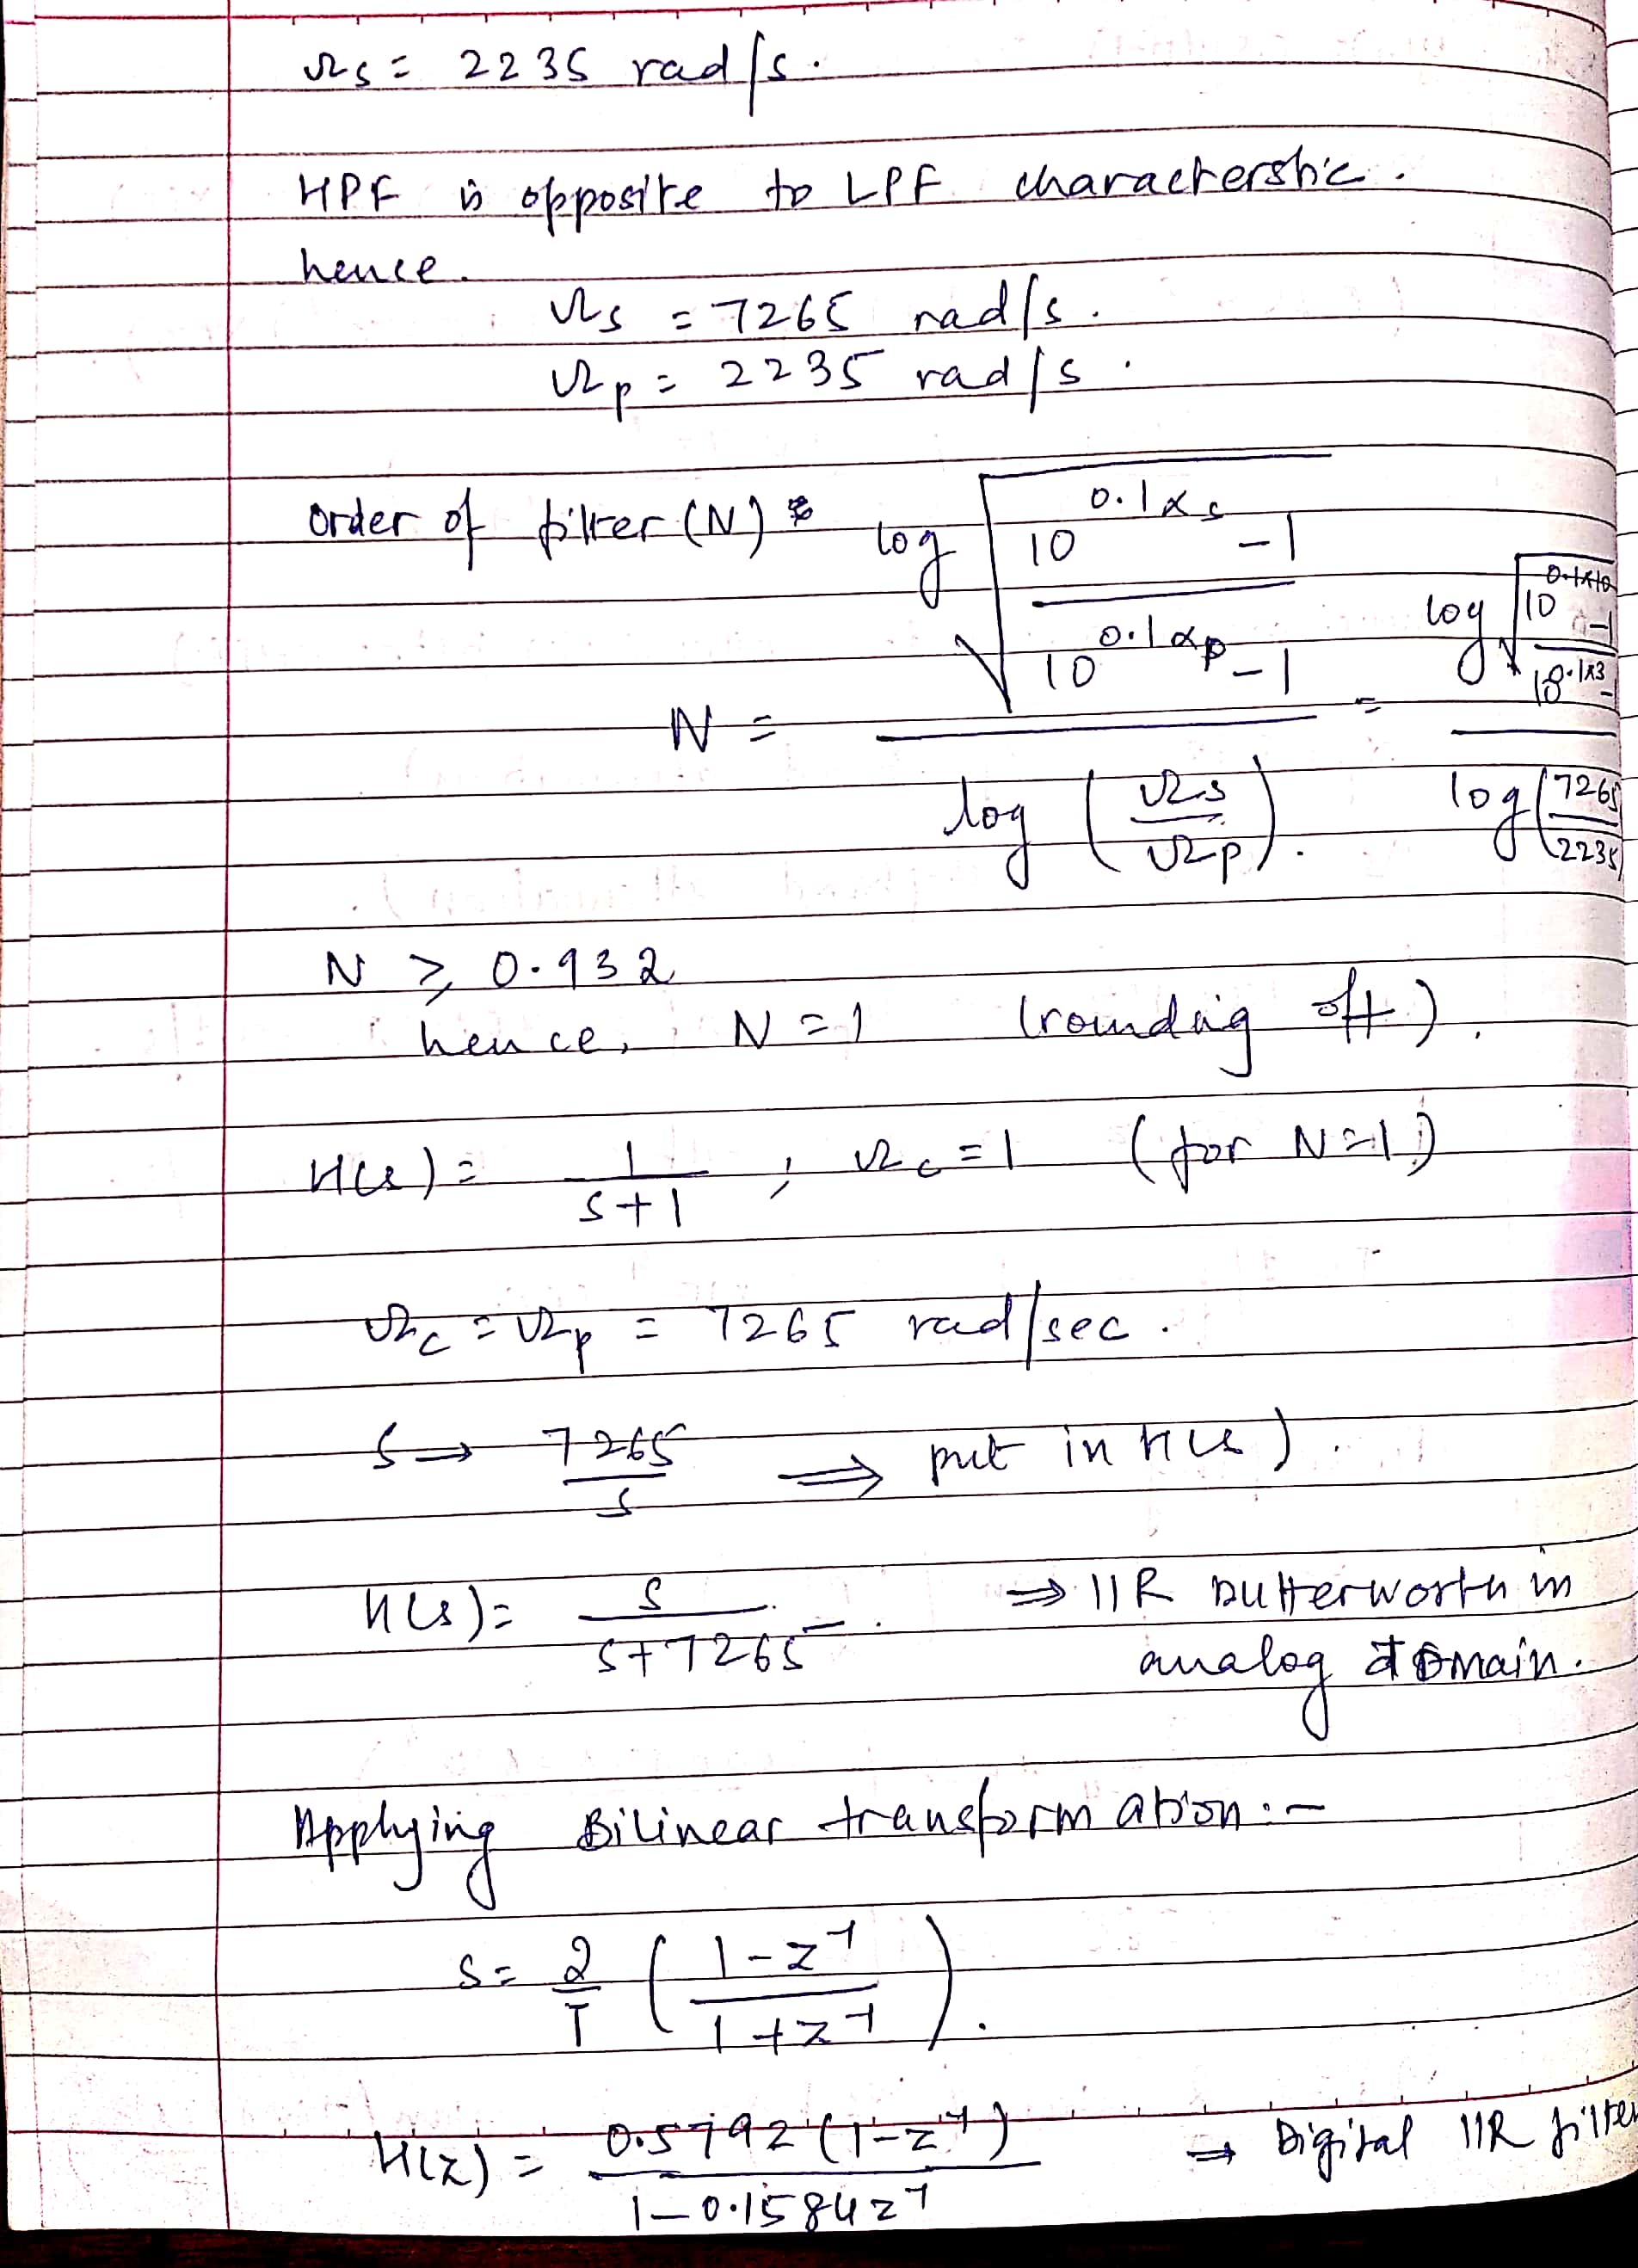 Ωs = 2235 rad/s.
HPF is opposite to LPF characterstic.
hence.
Ωs = 7265 rad/s.
Ωp = 2235 rad/s.
Order of filter (N)
N = log √((10^0.1αs - 1)/(10^0.1αp - 1)) / log (Ωs/Ωp). = log √((10^0.1×10 - 1)/(10^0.1×3 - 1)) / log (7265/2235)
N ≥ 0.932
hence, N = 1 (rounding off).
H(s) = 1/(s+1) ; Ωc = 1 (for N=1)
Ωc = Ωp = 7265 rad/sec.
s → 7265/s ⇒ put in H(s).
H(s) = s/(s+7265). ⇒ IIR Butterworth in
analog domain.
Applying Bilinear transformation:-
s = 2/T ((1-z^-1)/(1+z^-1)).
H(z) = 0.5792(1-z^-1)/(1-0.1584z^-1) → Digital IIR filter